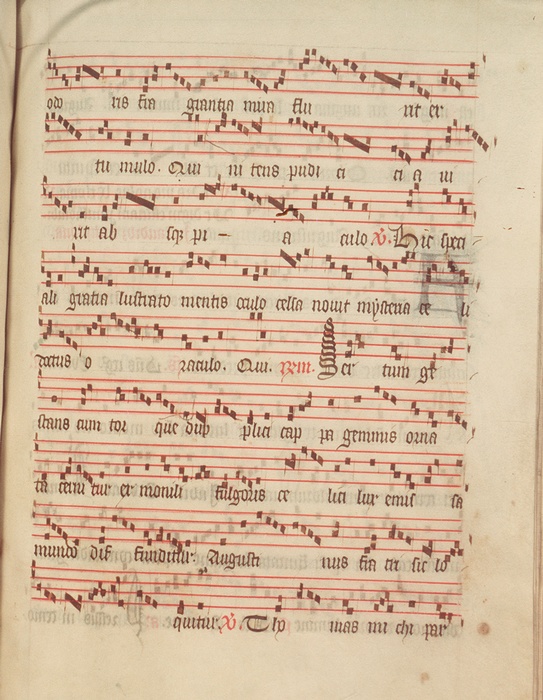 odo ris fra grantia mira flu rit ex
tu mulo. Qui ni tens pudi ci ci a ui
rit ab sq3 pi – a culo ℣. Hic speci
ali gratia lustrato mentis oculo celsa nouit mysteria ce li
o raculo. Qui. Ser tum ge
stans cum tor que dup plici cap pa geminis orna
ta cern tur et monili fulgoris ce lici lux emis sa
mundo dif funditur. Augusti nus fra tri sic lo
quitur. ℣. Tho mas mi chi par